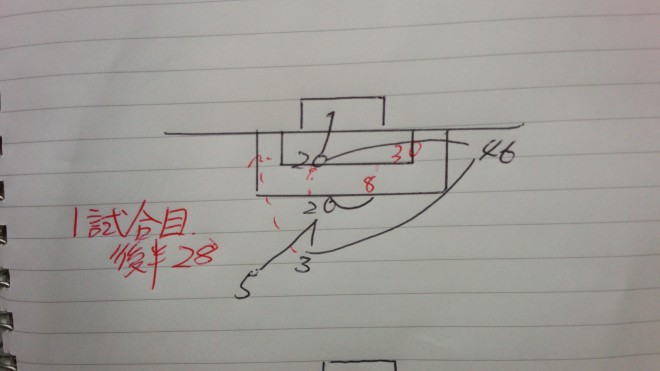 20
30
46
8
20
1試合目.
後半28'
3
5